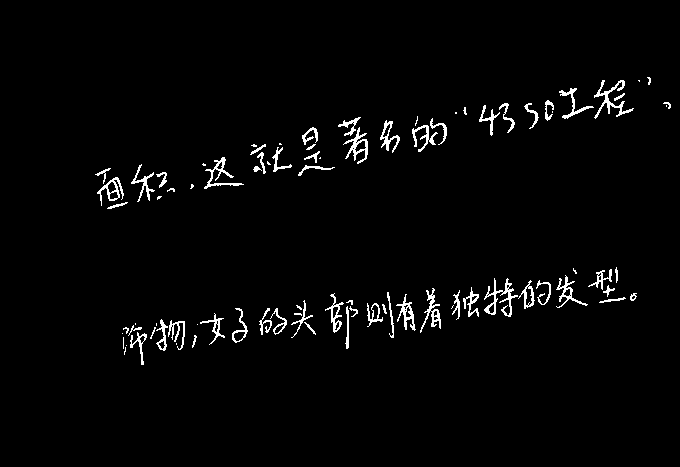 面积,这就是著名的“4350工程”。
饰物,女子的头部则有着独特的发型。